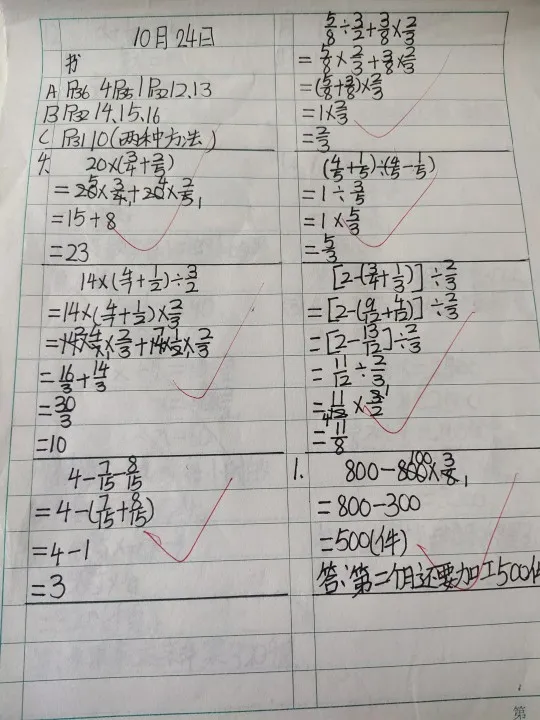 10月24日
书
A P36 4 P35 1 P32 12.13
B P32 14.15.16
C P31 10(两种方法)
4. 20×(3/4+2/5)
=20×3/4+20×2/5
=15+8
=23
14×(4/7+1/2)÷3/2
=14×(4/7+1/2)×2/3
=14×4/7×2/3+14×1/2×2/3
=16/3+14/3
=30/3
=10
4-7/15-8/15
=4-(7/15+8/15)
=4-1
=3
5/8÷3/2+3/8×2/3
=5/8×2/3+3/8×2/3
=(5/8+3/8)×2/3
=1×2/3
=2/3
(4/5+1/5)÷(4/5-1/5)
=1÷3/5
=1×5/3
=5/3
[2-(3/4+1/3)]÷2/3
=[2-(9/12+4/12)]÷2/3
=[2-13/12]÷2/3
=11/12÷2/3
=11/12×3/2
=11/8
1. 800-800×3/8
=800-300
=500(件)
答:第二个月还要加工500件
第